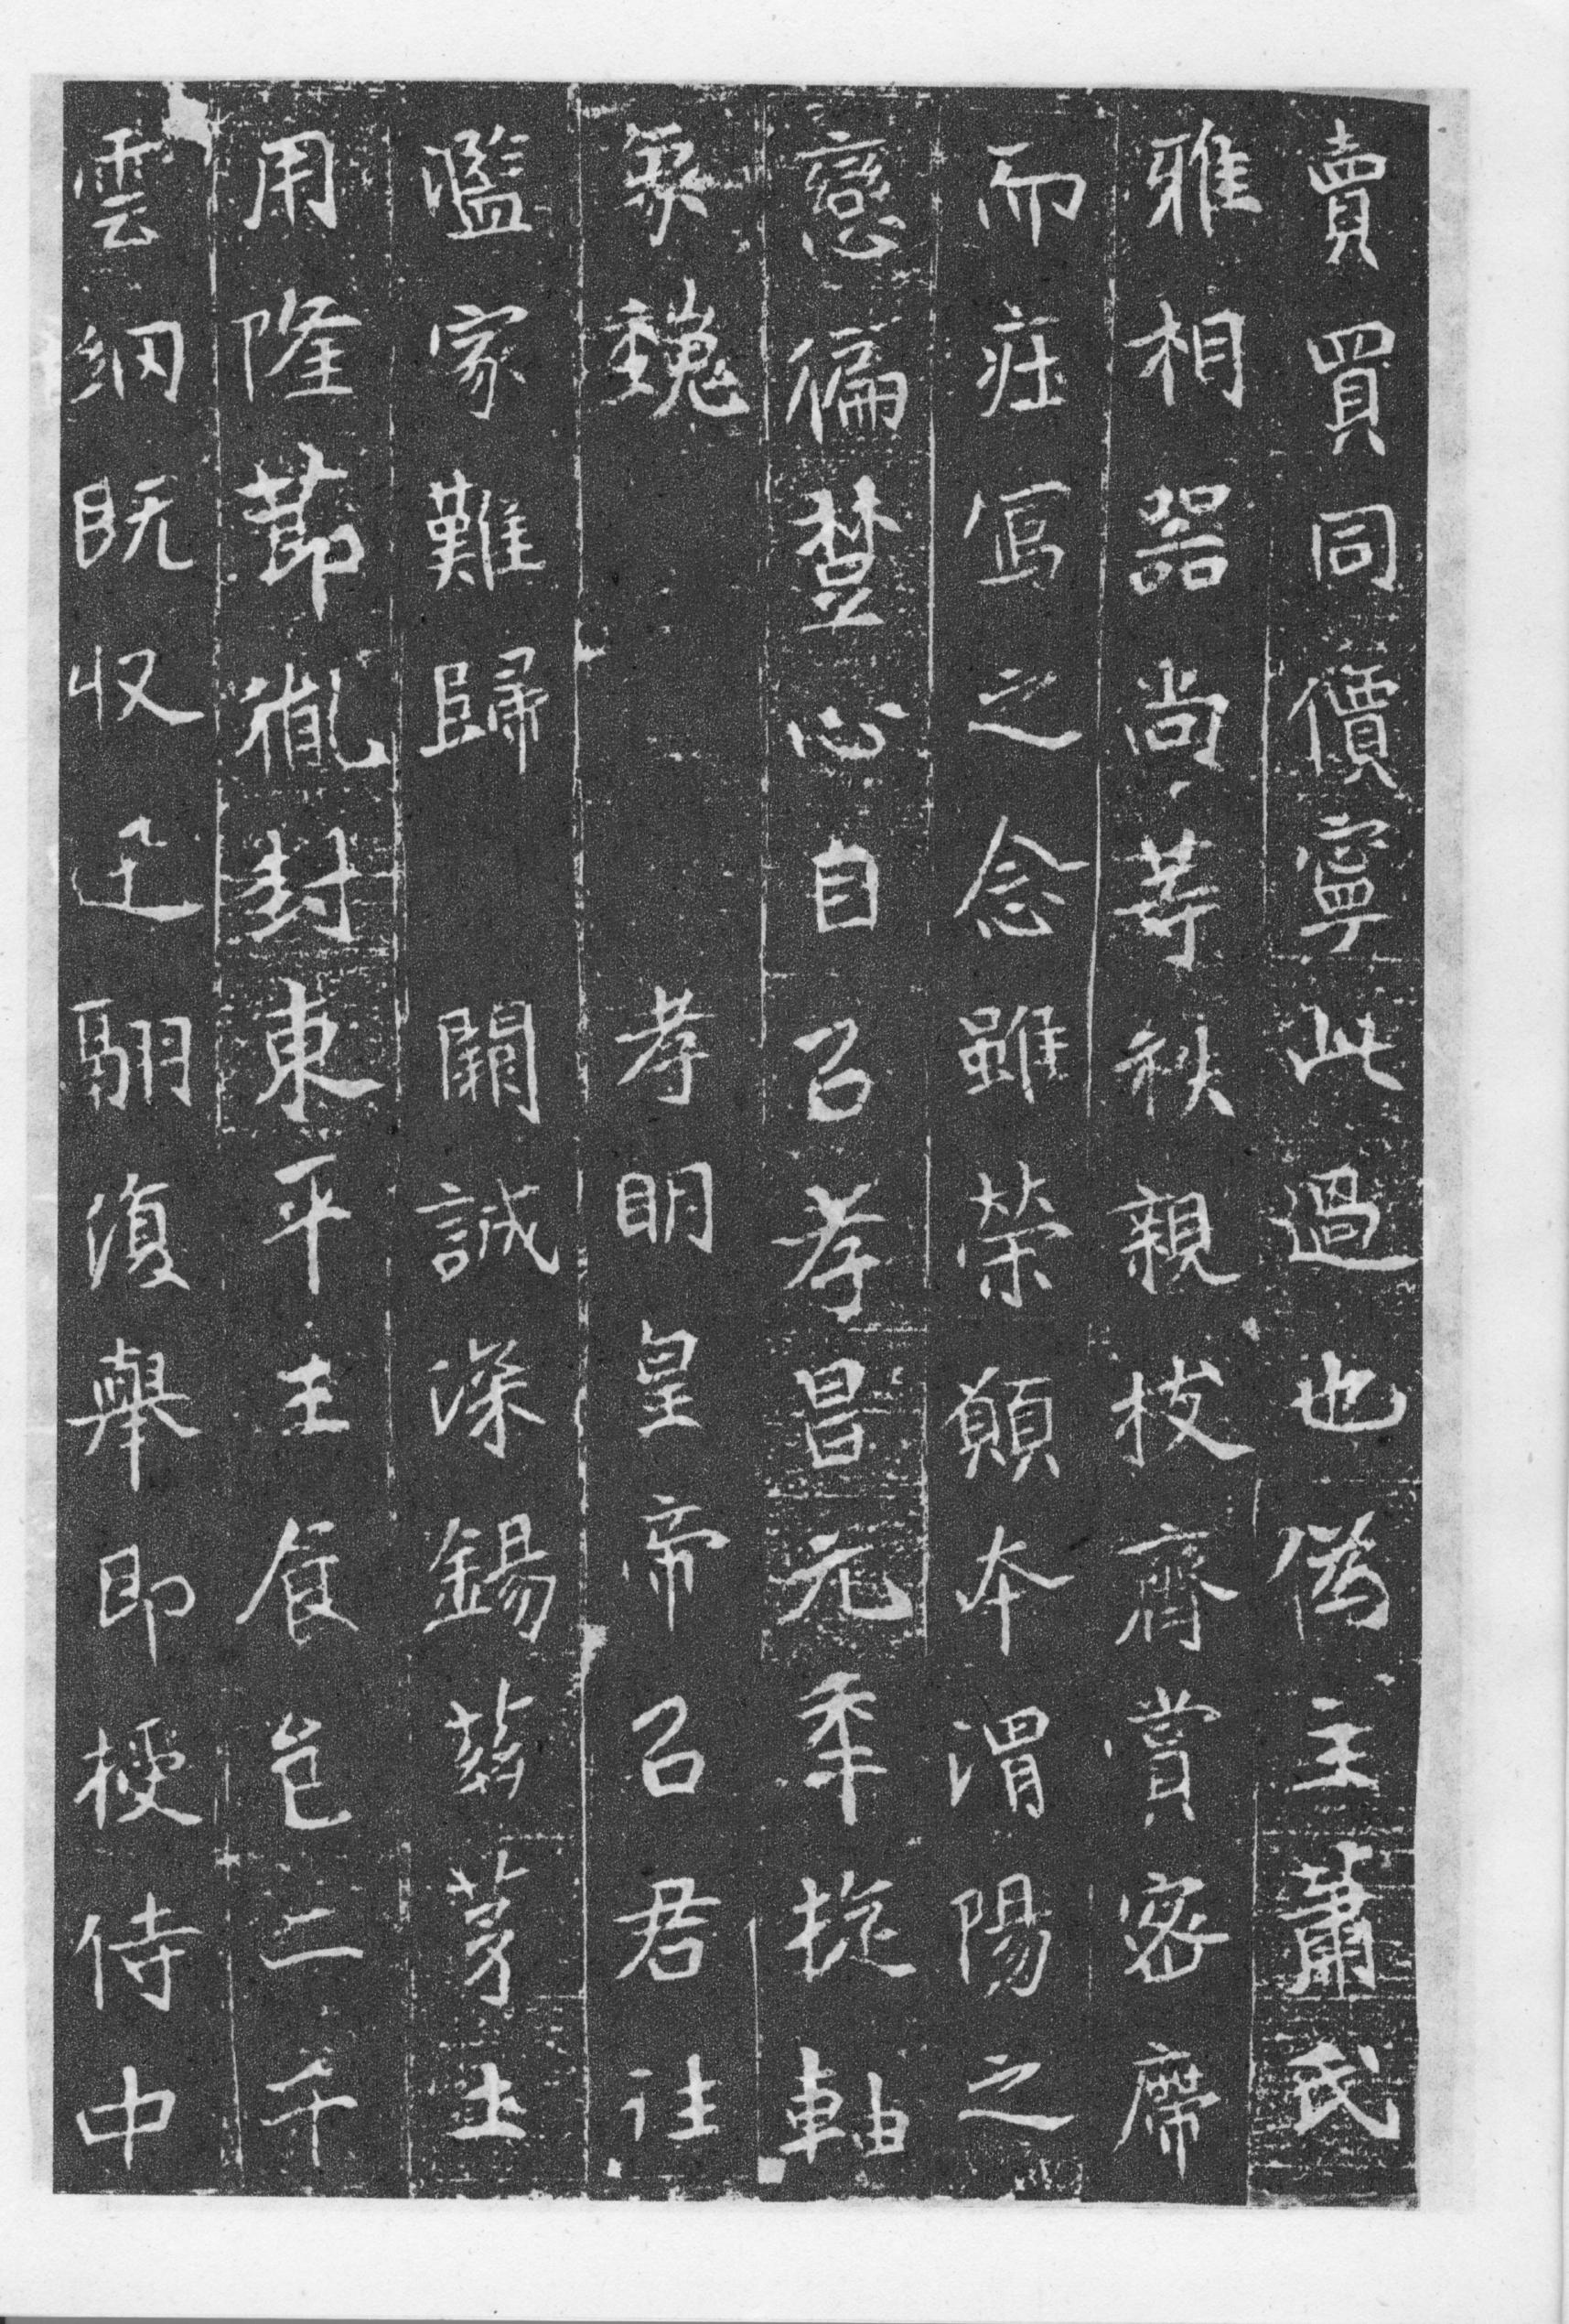 賣買同價寧此過也偽主蕭氏
雅相器尚等秩親枝齊賞密席
而莊寫之念雖榮願本渭陽之
戀偏楚心自以孝昌元年旋軸
象魏 孝明皇帝以君往
濫家難歸 闕誠深錫茲茅土
用隆節胤封東平王食邑二千
雲網既收翮復舉即授侍中